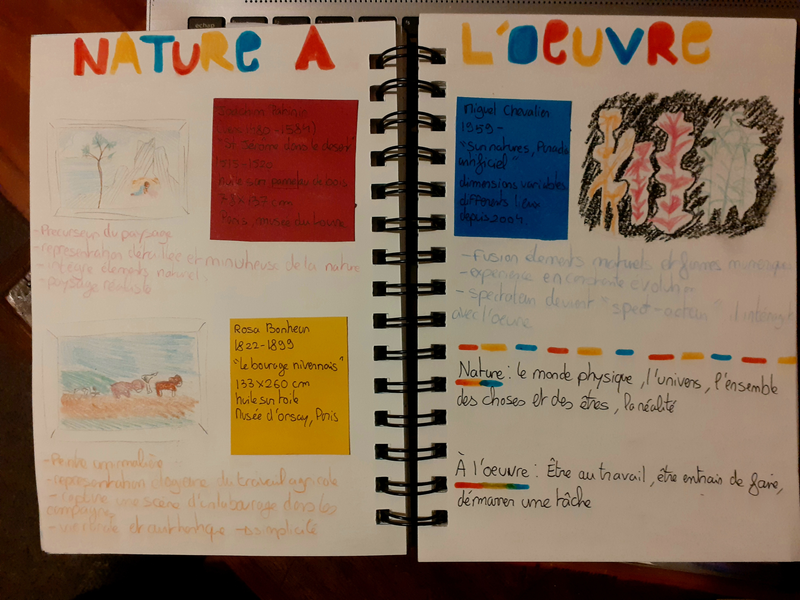 echap
NATURE A
Joachim Patinir
"St Jérôme dans le désert"
1515-1520
Huile sur panneau de bois
x 137 cm
Paris, musée du Louvre
-Précurseur du paysage
-représentation détaillée et minutieuse de la nature
- intègre éléments naturel
-paysage réaliste
Rosa Bonheur
1822-1899
"Le bourage nivernnais"
133x260 cm
huile sur toile
Musée d'orsay, Paris
-Peintre animalière
-représentation du travail agricole
- capture une scène d'un labourage dans les
campagnes
- et authentique -> simplicité
L'OEUVRE
Miguel Chevalier
1959 -
"Sur natures, Paradis
artificiel"
dimensions variables
différents lieux
depuis 2004
-fusion éléments naturels et formes numériques
-expérience en constante évolution
-spectateur devient "spect-acteur" il interagit
avec l'oeuvre.
Nature : le monde physique, l'univers, l'ensemble
des choses et des êtres, la réalité
À l'oeuvre : Être au travail, être entrain de faire,
démarrer une tâche